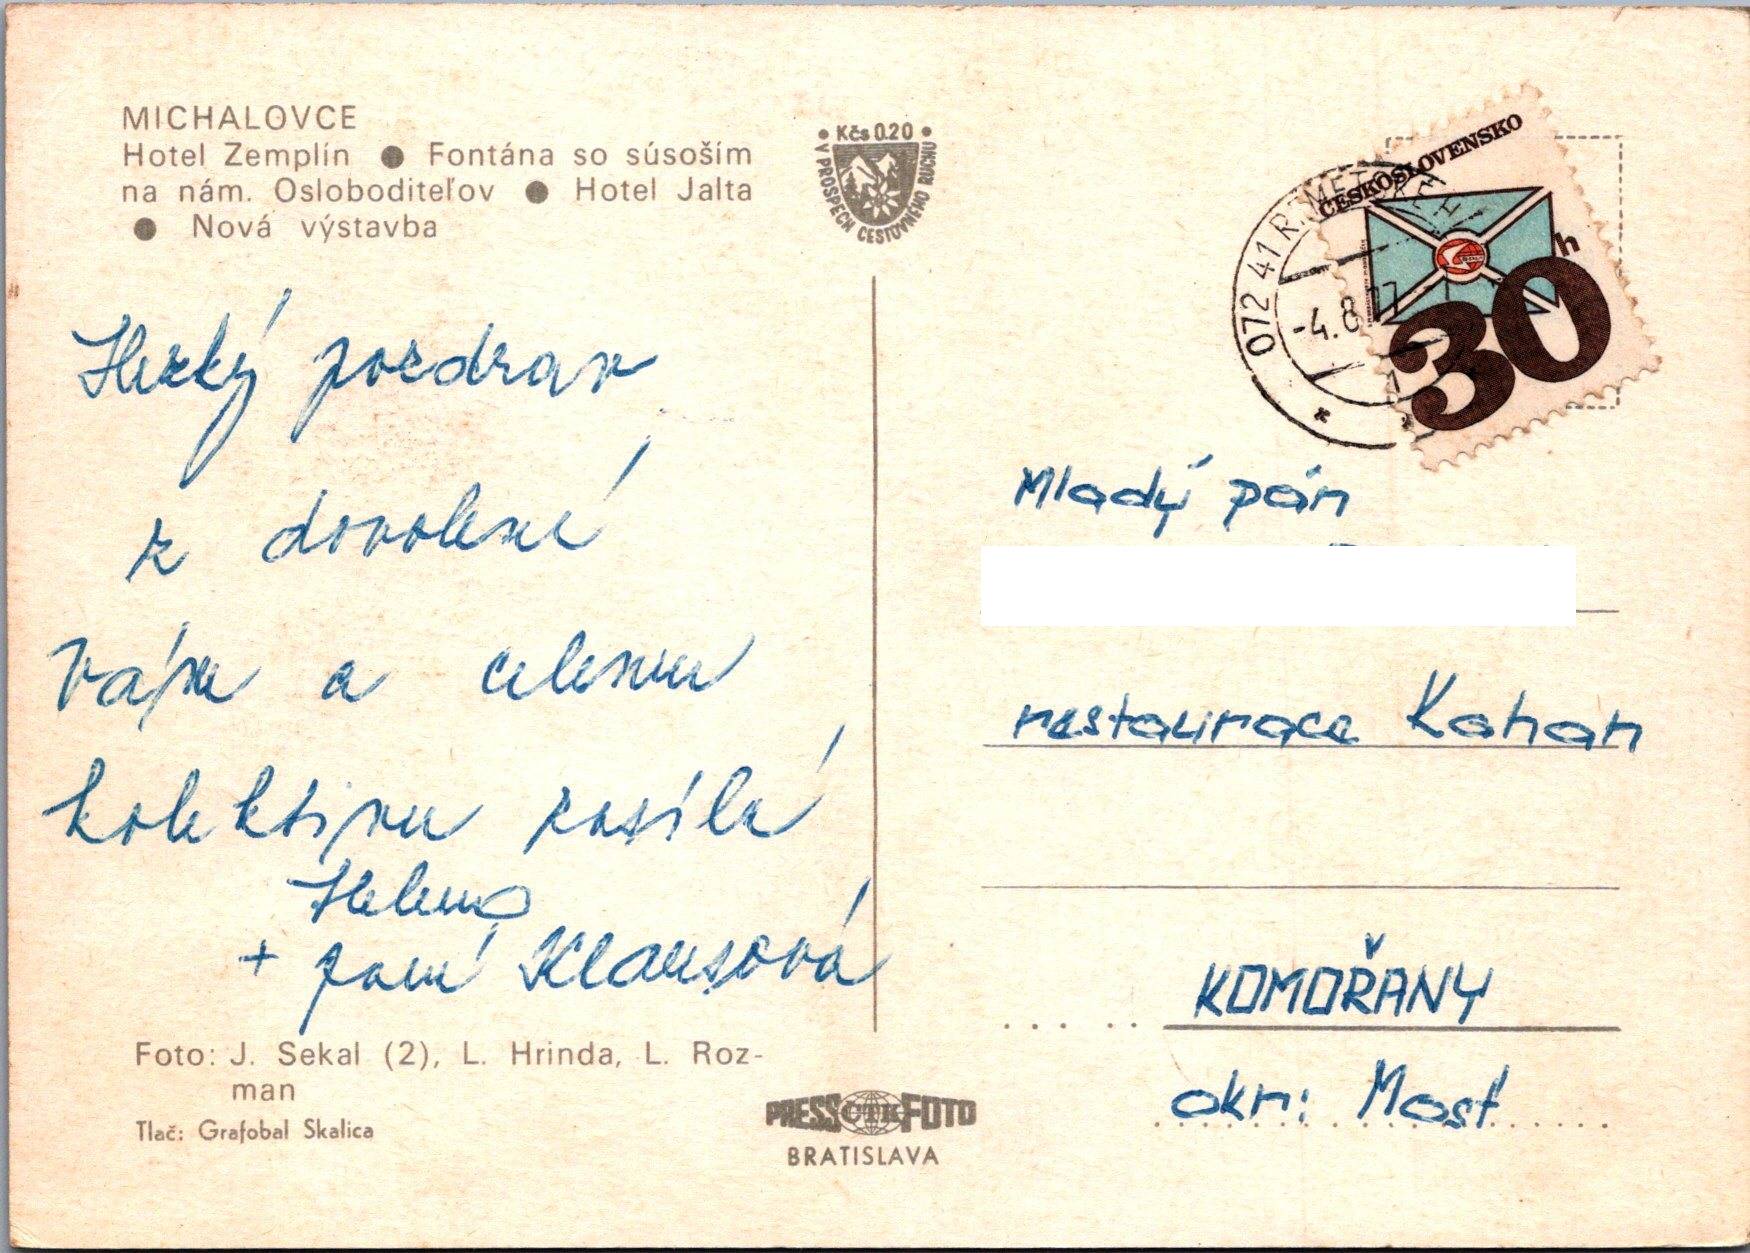 MICHALOVCE
Hotel Zemplín ● Fontána so súsoším
na nám. Osloboditeľov ● Hotel Jalta
● Nová výstavba
• Kčs 0.20 •
V PROSPECH CESTOVNÉHO RUCHU
ČESKOSLOVENSKO
30h
072 41
-4.8.77
Hezký pozdrav
z dovolené
Vám a celému
kolektivu posílá
Helena
+ paní Klausová
Mladý pán
restaurace Kahan
KOMOŘANY
okr: Most
Foto: J. Sekal (2), L. Hrinda, L. Roz-
man
Tlač: Grafobal Skalica
PRESS ČTK FOTO
BRATISLAVA